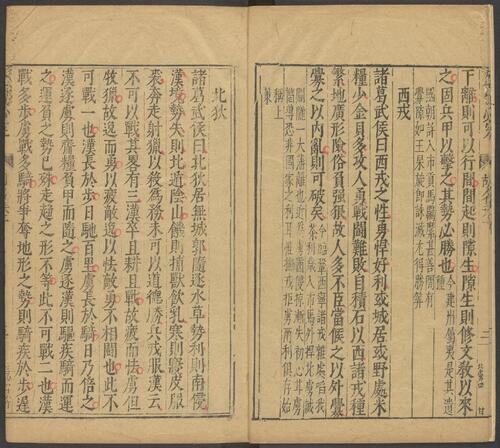 下離則可以行間間起則隙生隙生則修文教以來
之固兵甲以擊之其勢必勝也 今建州屬夷是其遺種
西戎
諸葛武侯曰西戎之性勇悍好利或城居或野處米
糧少金貝多故人勇戰鬭難敗自積石以西諸戎種
繁地廣形險俗負强狠故人多不臣當候之以外釁
釁之以内亂則可破矣
北狄
諸葛武侯曰北狄居無城郭隨逐水草勢利則南侵
漢境勢失則北遁陰山饑則捕獸飲乳寒則寢皮服
裘奔走射獵以殺為務未可以道德勝兵戎服漢云
不可以戰其畧有三漢卒且耕且戰故疲而怯虜但
牧獵故逸而勇以疲敵逸以怯敵勇不相鬭也此不
可戰一也漢長於步日馳百里虜長於騎日乃倍之
漢逐虜則齎糧負甲而隨之虜逐漢則驅疾騎而運
之運負之勢已殊走趨之形不等此不可戰二也漢
戰多步虜戰多騎將爭奪地形之勢則騎疾於步遲